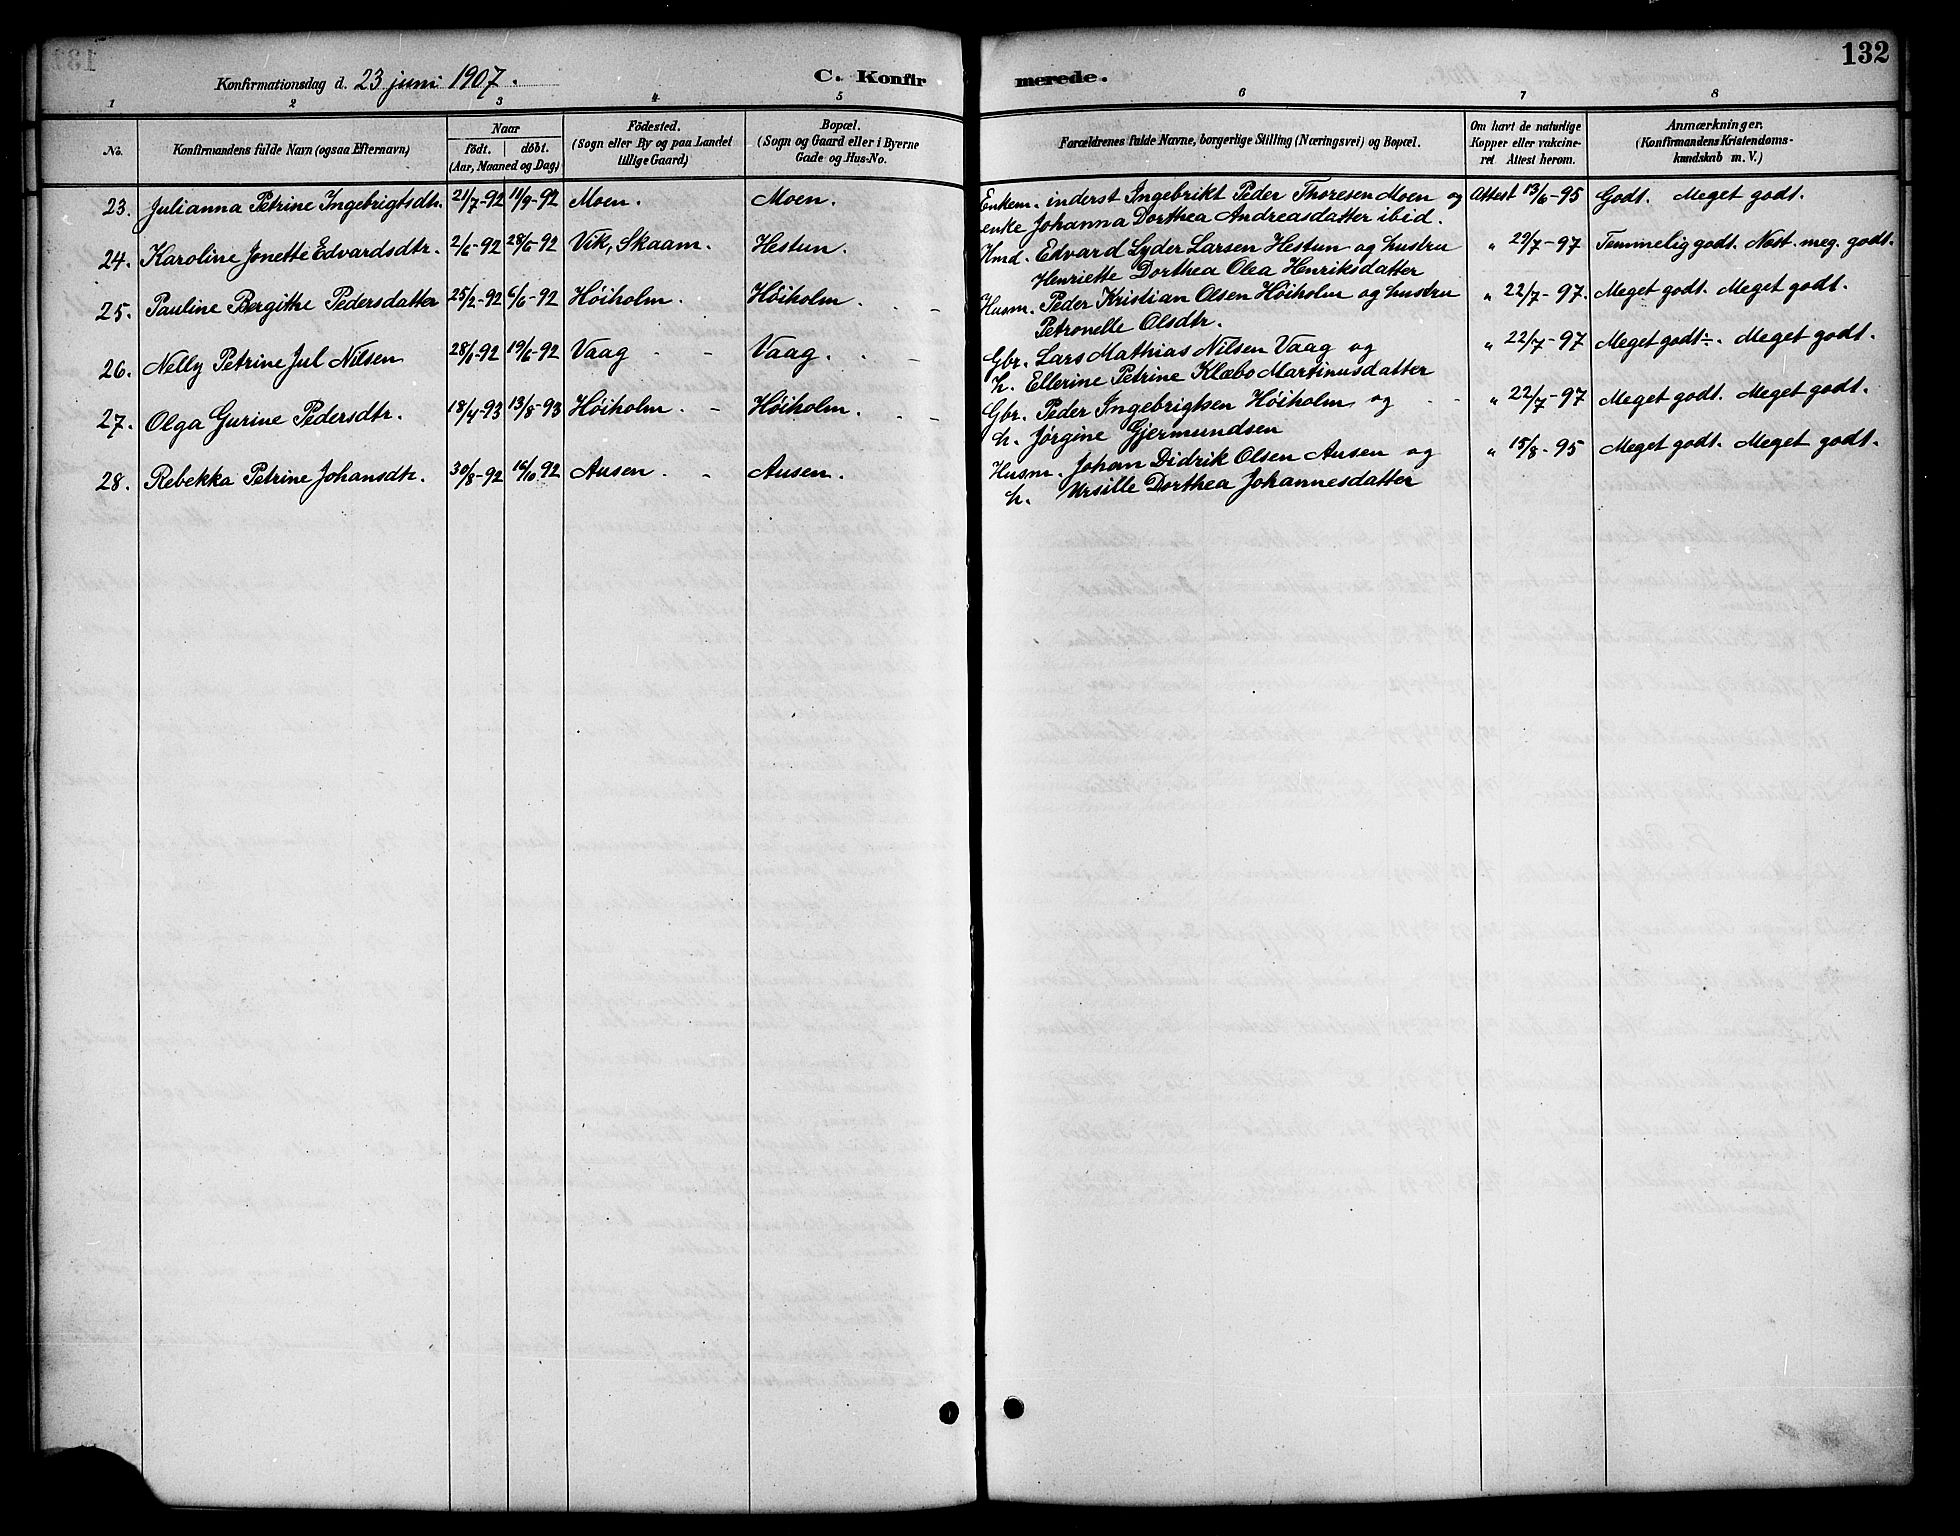 132
Konfirmationsdag d. 23 juni 1907.
C. Konfir merede.
1 2 3 4 5 6 7 8
No.
Konfirmandens fulde Navn (ogsaa Efternavn)
Naar
födt. döbt.
(Aar, Maaned og Dag)
Födested.
(Sogn eller By og paa Landet
tillige Gaard)
Bopæl.
(Sogn og Gaard eller i Byerne
Gade og Hus-No.
Forældrenes fulde Navne, borgerlige Stilling (Næringsvei) og Bopæl.
Om havt de naturlige
Kopper eller vakcine-
ret Attest herom.
Anmærkninger.
(Konfirmandens Kristendoms-
kundskab m. V.)
23. Julianna Petrine Ingebrigtsdtr. 21/7-92 11/9-92 Moen. Moen. Enkem. inderst Ingebrikt Peder Thoresen Moen og Attest 13/6-95 Godt. Meget godt.
enke Johanna Dorthea Andreasdatter ibid.
24. Karoline Jonette Edvardsdtr. 2/6-92 28/6-92 Vik, Skaam. Hestun. Hmd. Edvard Lyder Larsen Hestun og hustru " 23/7-97 Temmelig godt. Næst. meg. godt.
Henriette Dorthea Olea Henriksdatter
25. Pauline Bergithe Pedersdatter 25/2-92 6/6-92 Höiholm. Höiholm. Husm. Peder Kristian Olsen Höiholm og hustru " 22/7-97. Meget godt. Meget godt.
Petronelle Olsdtr.
26. Nelly Petrine Jul Nilsen 28/1-92 19/6-92 Vaag Vaag. Gbr. Lars Mathias Nilsen Vaag og " 22/7-97 Meget godt ÷. Meget godt.
h. Ellerine Petrine Klæbo Martinusdatter
27. Olga Gurine Pedersdtr. 18/4-93 13/8-93 Höiholm. Höiholm. Gbr. Peder Ingebrigtsen Höiholm og " 22/7-97 Meget godt. Meget godt.
h. Jørgine Gjermundsen
28. Rebekka Petrine Johansdtr. 30/8-92 16/10 92 Ausen. Ausen. Husm. Johan Didrik Olsen Ausen og " 15/8-95 Meget godt. Meget godt.
h. Ursille Dorthea Johannesdatter